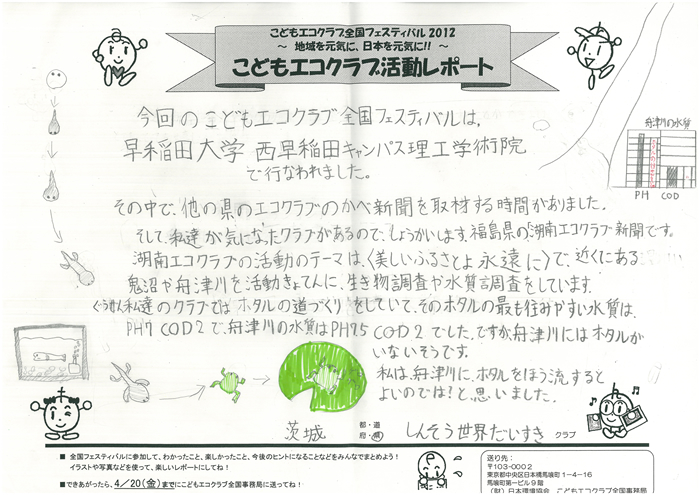 こどもエコクラブ全国フェスティバル 2012
～ 地域を元気に、日本を元気に!! ～
こどもエコクラブ活動レポート
今回のこどもエコクラブ全国フェスティバルは、
早稲田大学 西早稲田キャンパス理工学術院
で行なわれました。
舟津川の水質
PH COD
その中で、他の県のエコクラブのかべ新聞を取材する時間がありました。
そして、私達が気になったクラブがあるので、しょうかいします。福島県の「湖南エコクラブ新聞です。
湖南エコクラブの活動のテーマは、〈美しいふるさとよ永遠に〉で、近くにある
鬼沼や舟津川を活動きょてんに、生き物調査や水質調査をしています。
ぐうぜん私達のクラブでは"ホタルの道づくり"をしていて、そのホタルの最も住みやすい水質は、
PH7 COD2で、舟津川の水質はPH7.5 COD2でした。ですが、舟津川にはホタルが
いないそうです。
私は、舟津川に、ホタルをほう流すると
よいのでは?と思いました。
茨城 都・道 府・県 しんそう世界だいすき クラブ
■ 全国フェスティバルに参加して、わかったこと、楽しかったこと、今後のヒントになることなどをみんなでまとめよう!
イラストや写真などを使って、楽しいレポートにしてね!
■できあがったら、4/20(金)までにこどもエコクラブ全国事務局に送ってね!
送り先:
〒103-0002
東京都中央区日本橋馬喰町1-4-16
馬喰町第一ビル9階
(財)日本環境協会 こどもエコクラブ全国事務局